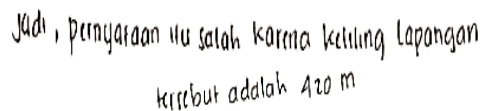 Jadi, pernyataan itu salah karena keliling lapangan
tersebut adalah 420 m